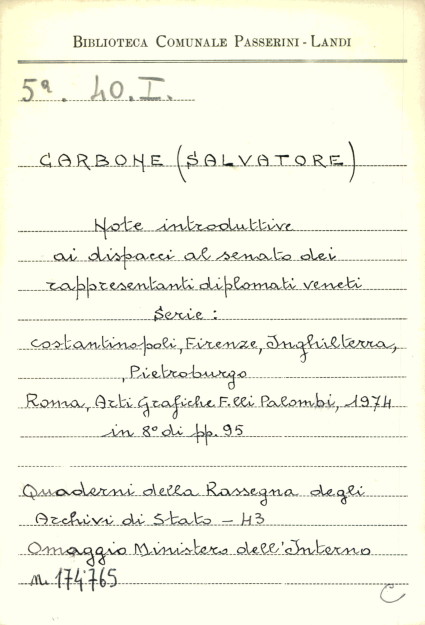 BIBLIOTECA COMUNALE PASSERINI - LANDI
5ª. 40. I.
CARBONE (SALVATORE)
Note introduttive
ai dispacci al senato dei
rappresentanti diplomati veneti
Serie :
Costantinopoli, Firenze, Inghilterra,
, Pietroburgo
Roma, Arti Grafiche F.lli Palombi, 1974
in 8° di pp. 95
Quaderni della Rassegna degli
Archivi di Stato - 43
Omaggio Ministero dell'Interno
n. 174765
C